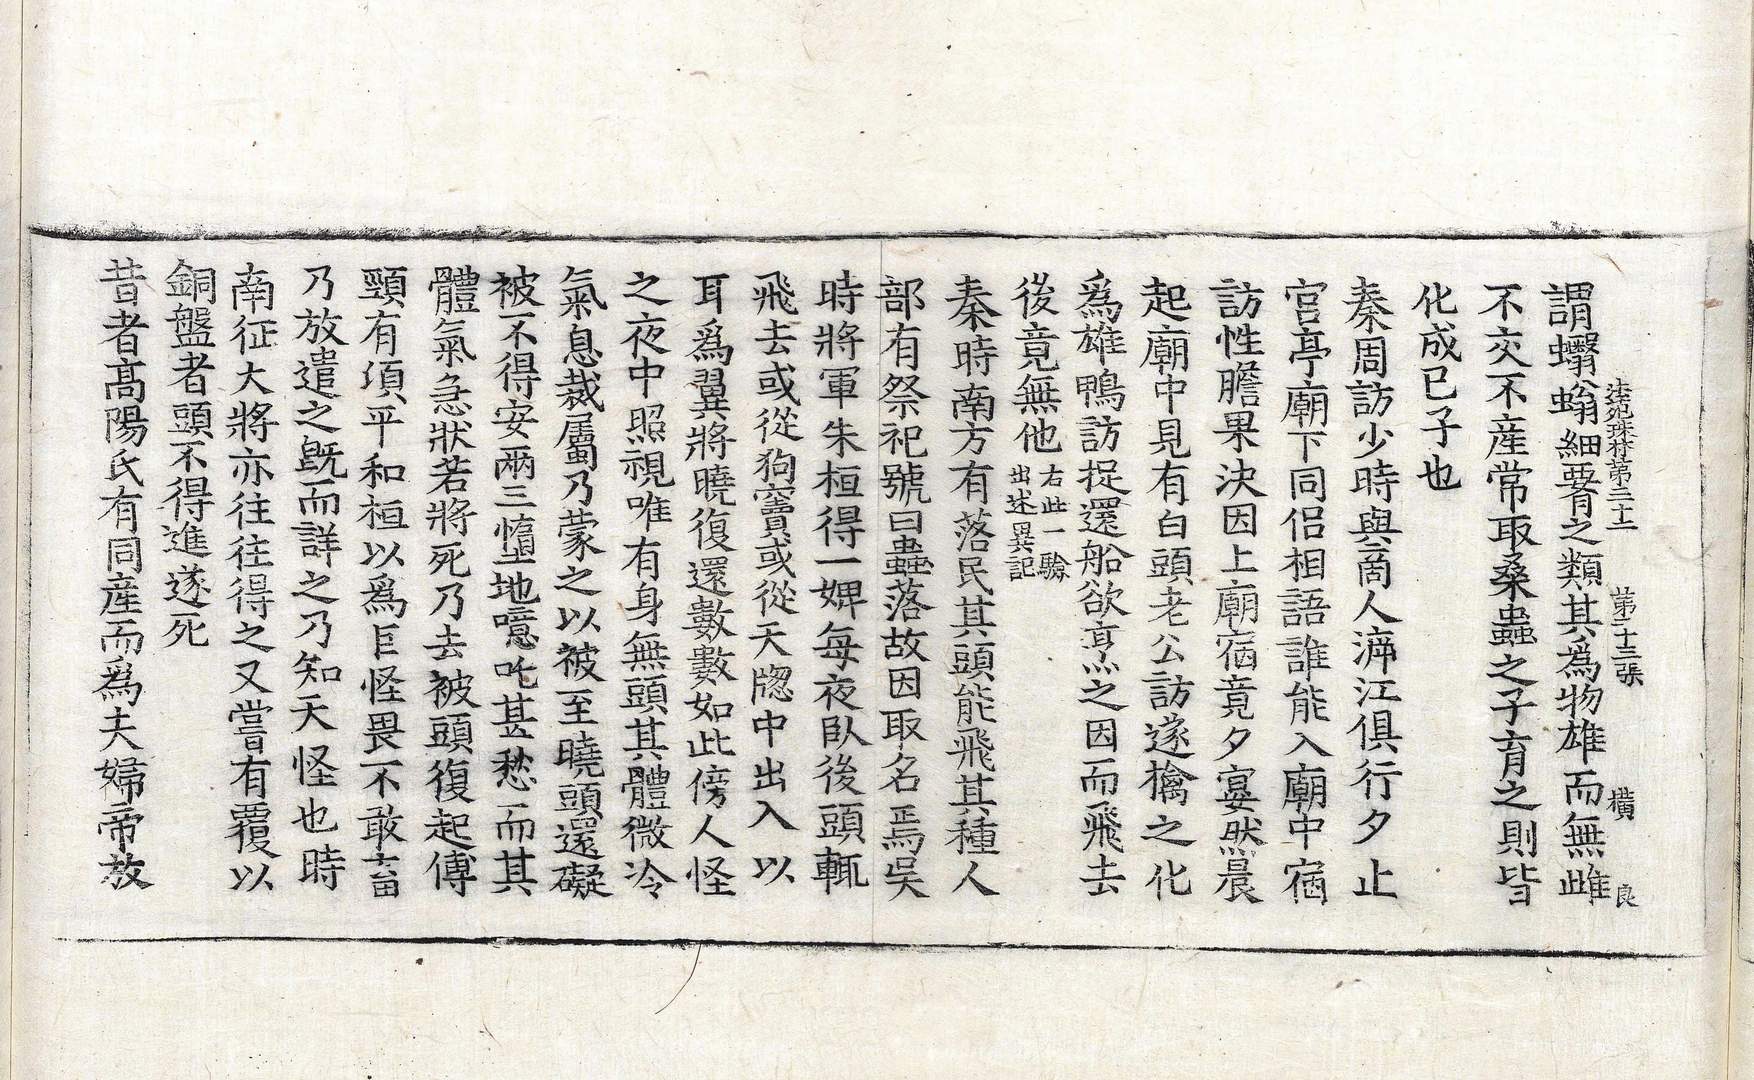 法苑珠林第三十二　第二十三張　橫　良
謂蠮螉細𦝫之類其為物雄而無雌
不交不產常取桑蟲之子育之則皆
化成已子也
秦周訪少時與商人泝江俱行夕止
宮亭廟下同侶相語誰能入廟中宿
訪性膽果決因上廟宿竟夕宴然晨
起廟中見有白頭老公訪遂擒之化
爲雄鴨訪捉還船欲烹之因而飛去
後竟無他右此一驗出述異記
秦時南方有落民其頭能飛其種人
部有祭祀號曰蟲落故因取名焉吳
時將軍朱桓得一婢每夜臥後頭輒
飛去或從狗竇或從天牎中出入以
耳爲翼將曉復還數數如此傍人怪
之夜中照視唯有身無頭其體微冷
氣息裁屬乃蒙之以被至曉頭還礙
被不得安兩三墮地噫吒甚愁而其
體氣急狀若將死乃去被頭復起傅
頸有頃平和桓以爲巨怪畏不敢畜
乃放遣之旣而詳之乃知天怪也時
南征大將亦往往得之又嘗有覆以
銅盤者頭不得進遂死
昔者高陽氏有同產而爲夫婦帝放